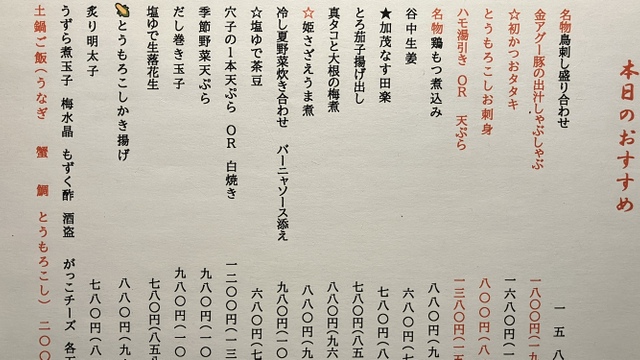 本日のおすすめ
名物鳥刺し盛り合わせ 一五八
金アグー豚の出汁しゃぶしゃぶ 一八〇〇円(一九
☆初かつおタタキ 一六八〇円(一
とうもろこしお刺身 八〇〇円(八
ハモ湯引き OR 天ぷら 一三八〇円(一五
名物鶏もつ煮込み 八八〇円(九
谷中生姜 六八〇円(七
★加茂なす田楽 七八〇円(八
とろ茄子揚げ出し 七八〇円(八五
真タコと大根の梅煮 八八〇円(九六
☆姫さざえうま煮 八八〇円(九
冷し夏野菜炊き合わせ バーニャソース添え 九八〇円(一〇
☆塩ゆで茶豆 六八〇円(七
穴子の1本天ぷら OR 白焼き 一二〇〇円(一三
季節野菜天ぷら 九八〇円(一〇
だし巻き玉子 九八〇円(一〇
塩ゆで生落花生 七八〇円(八五
とうもろこしかき揚げ 八八〇円(九
炙り明太子 七八〇円(八
うずら煮玉子 梅水晶 もずく酢 酒盗 がっこチーズ 各五
土鍋ご飯(うなぎ 蟹 鯛 とうもろこし) 二〇〇